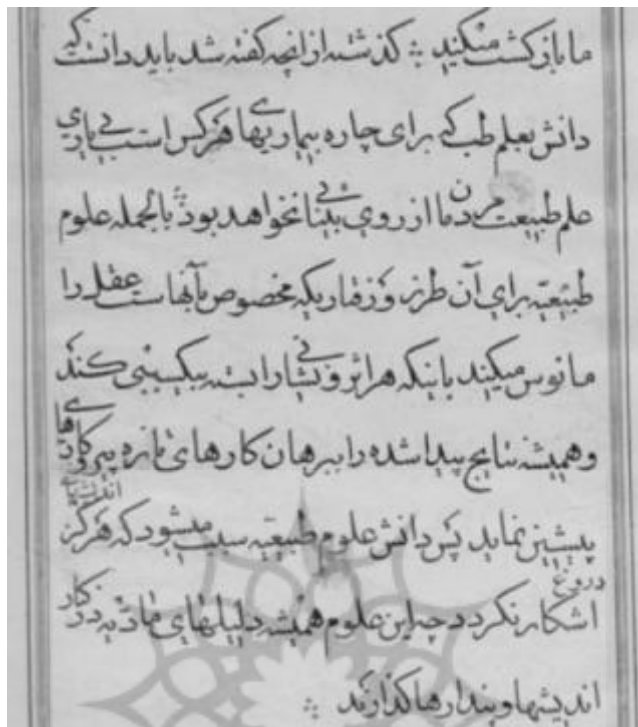 ما بازگشت میکنید ؞ گذشته از انچه گفته شد باید دانست که
دانش بعلم طب که برای چاره بیماریهای هرکس است بی یاری
علم طبیعت مردن ما از روی بینائی نخواهد بود ؞ بالجمله علوم
طبیعیه برای آن طرز و رفتاریکه مخصوص بآنهاست عقل را
مانوس میکند باینکه هر اثر و نشانی را بسته بیک سببی کند
وهمیشه نتایج پیدا شده را ببرهان کارهای تازه پیروی
اندیشهای
پیشین نماید پس دانش علوم طبیعیه سبب میشود که هرگز
دروغ
اشکار نگردد چه این علوم همیشه دلیلهای مادیه در کار
اندیشها و پندارها گذارند ؞